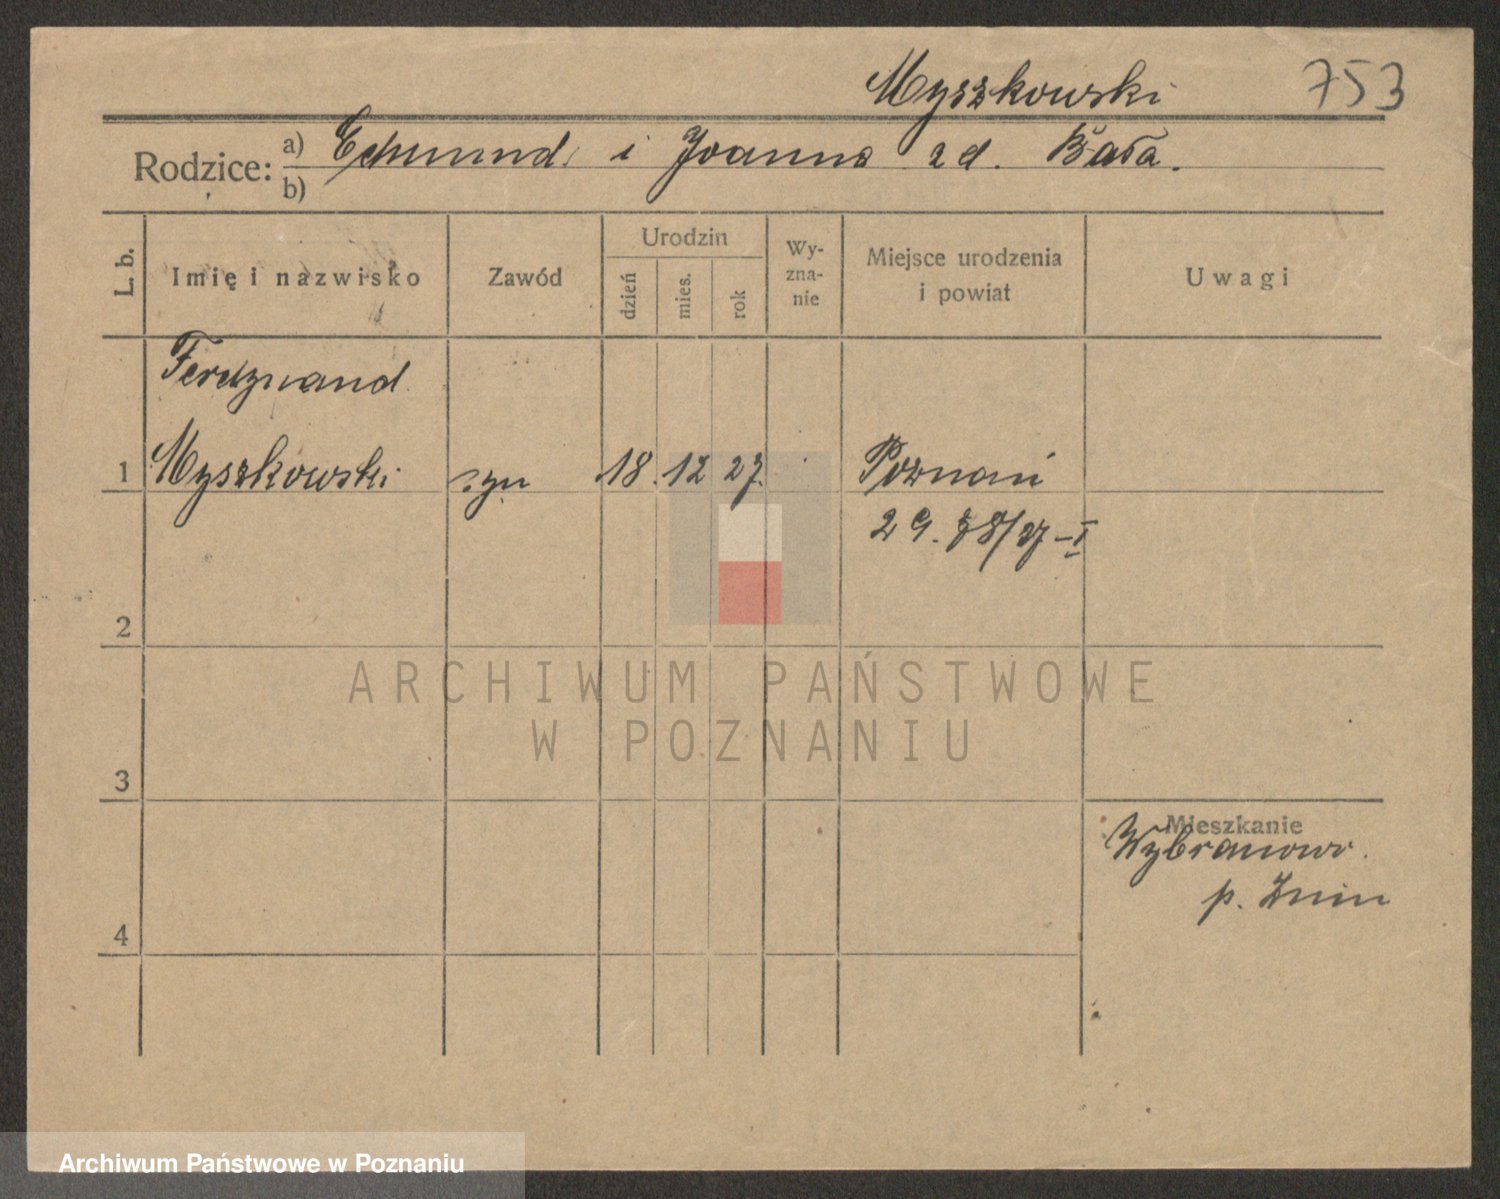 Myszkowski 753
Rodzice: a) Edmund i Joanna zd. Bała.
b)
L. b. Imię i nazwisko Zawód Urodzin dzień mies. rok Wy-zna-nie Miejsce urodzenia i powiat Uwagi
Ferdynand
1 Myszkowski syn 18. 12 27. Poznań
29. 78/37-I
2
ARCHIWUM PAŃSTWOWE
W POZNANIU
3
Mieszkanie
Wybranowo.
p. Żnin
4
Archiwum Państwowe w Poznaniu